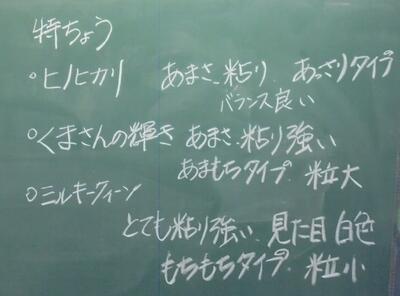 特ちょう
○ヒノヒカリ あまさ、粘り、あっさりタイプ
バランス良い
○くまさんの輝き あまさ、粘り強い
あまもちタイプ、粒大
○ミルキークィーン
とても粘り強い、見た目白色
もちもちタイプ、粒小